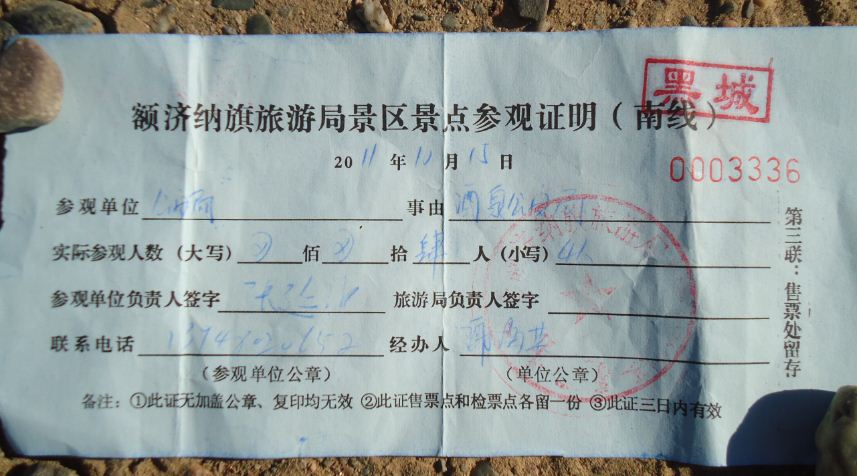 黑城
额济纳旗旅游局景区景点参观证明（南线）
2011年10月15日
0003336
参观单位 事由 酒泉公安局
实际参观人数（大写） 佰 拾 肆 人（小写） 4人
参观单位负责人签字 旅游局负责人签字
联系电话 经办人
（参观单位公章） （单位公章）
备注：①此证无加盖公章、复印均无效 ②此证售票点和检票点各留一份 ③此证三日内有效
第三联：售票处留存